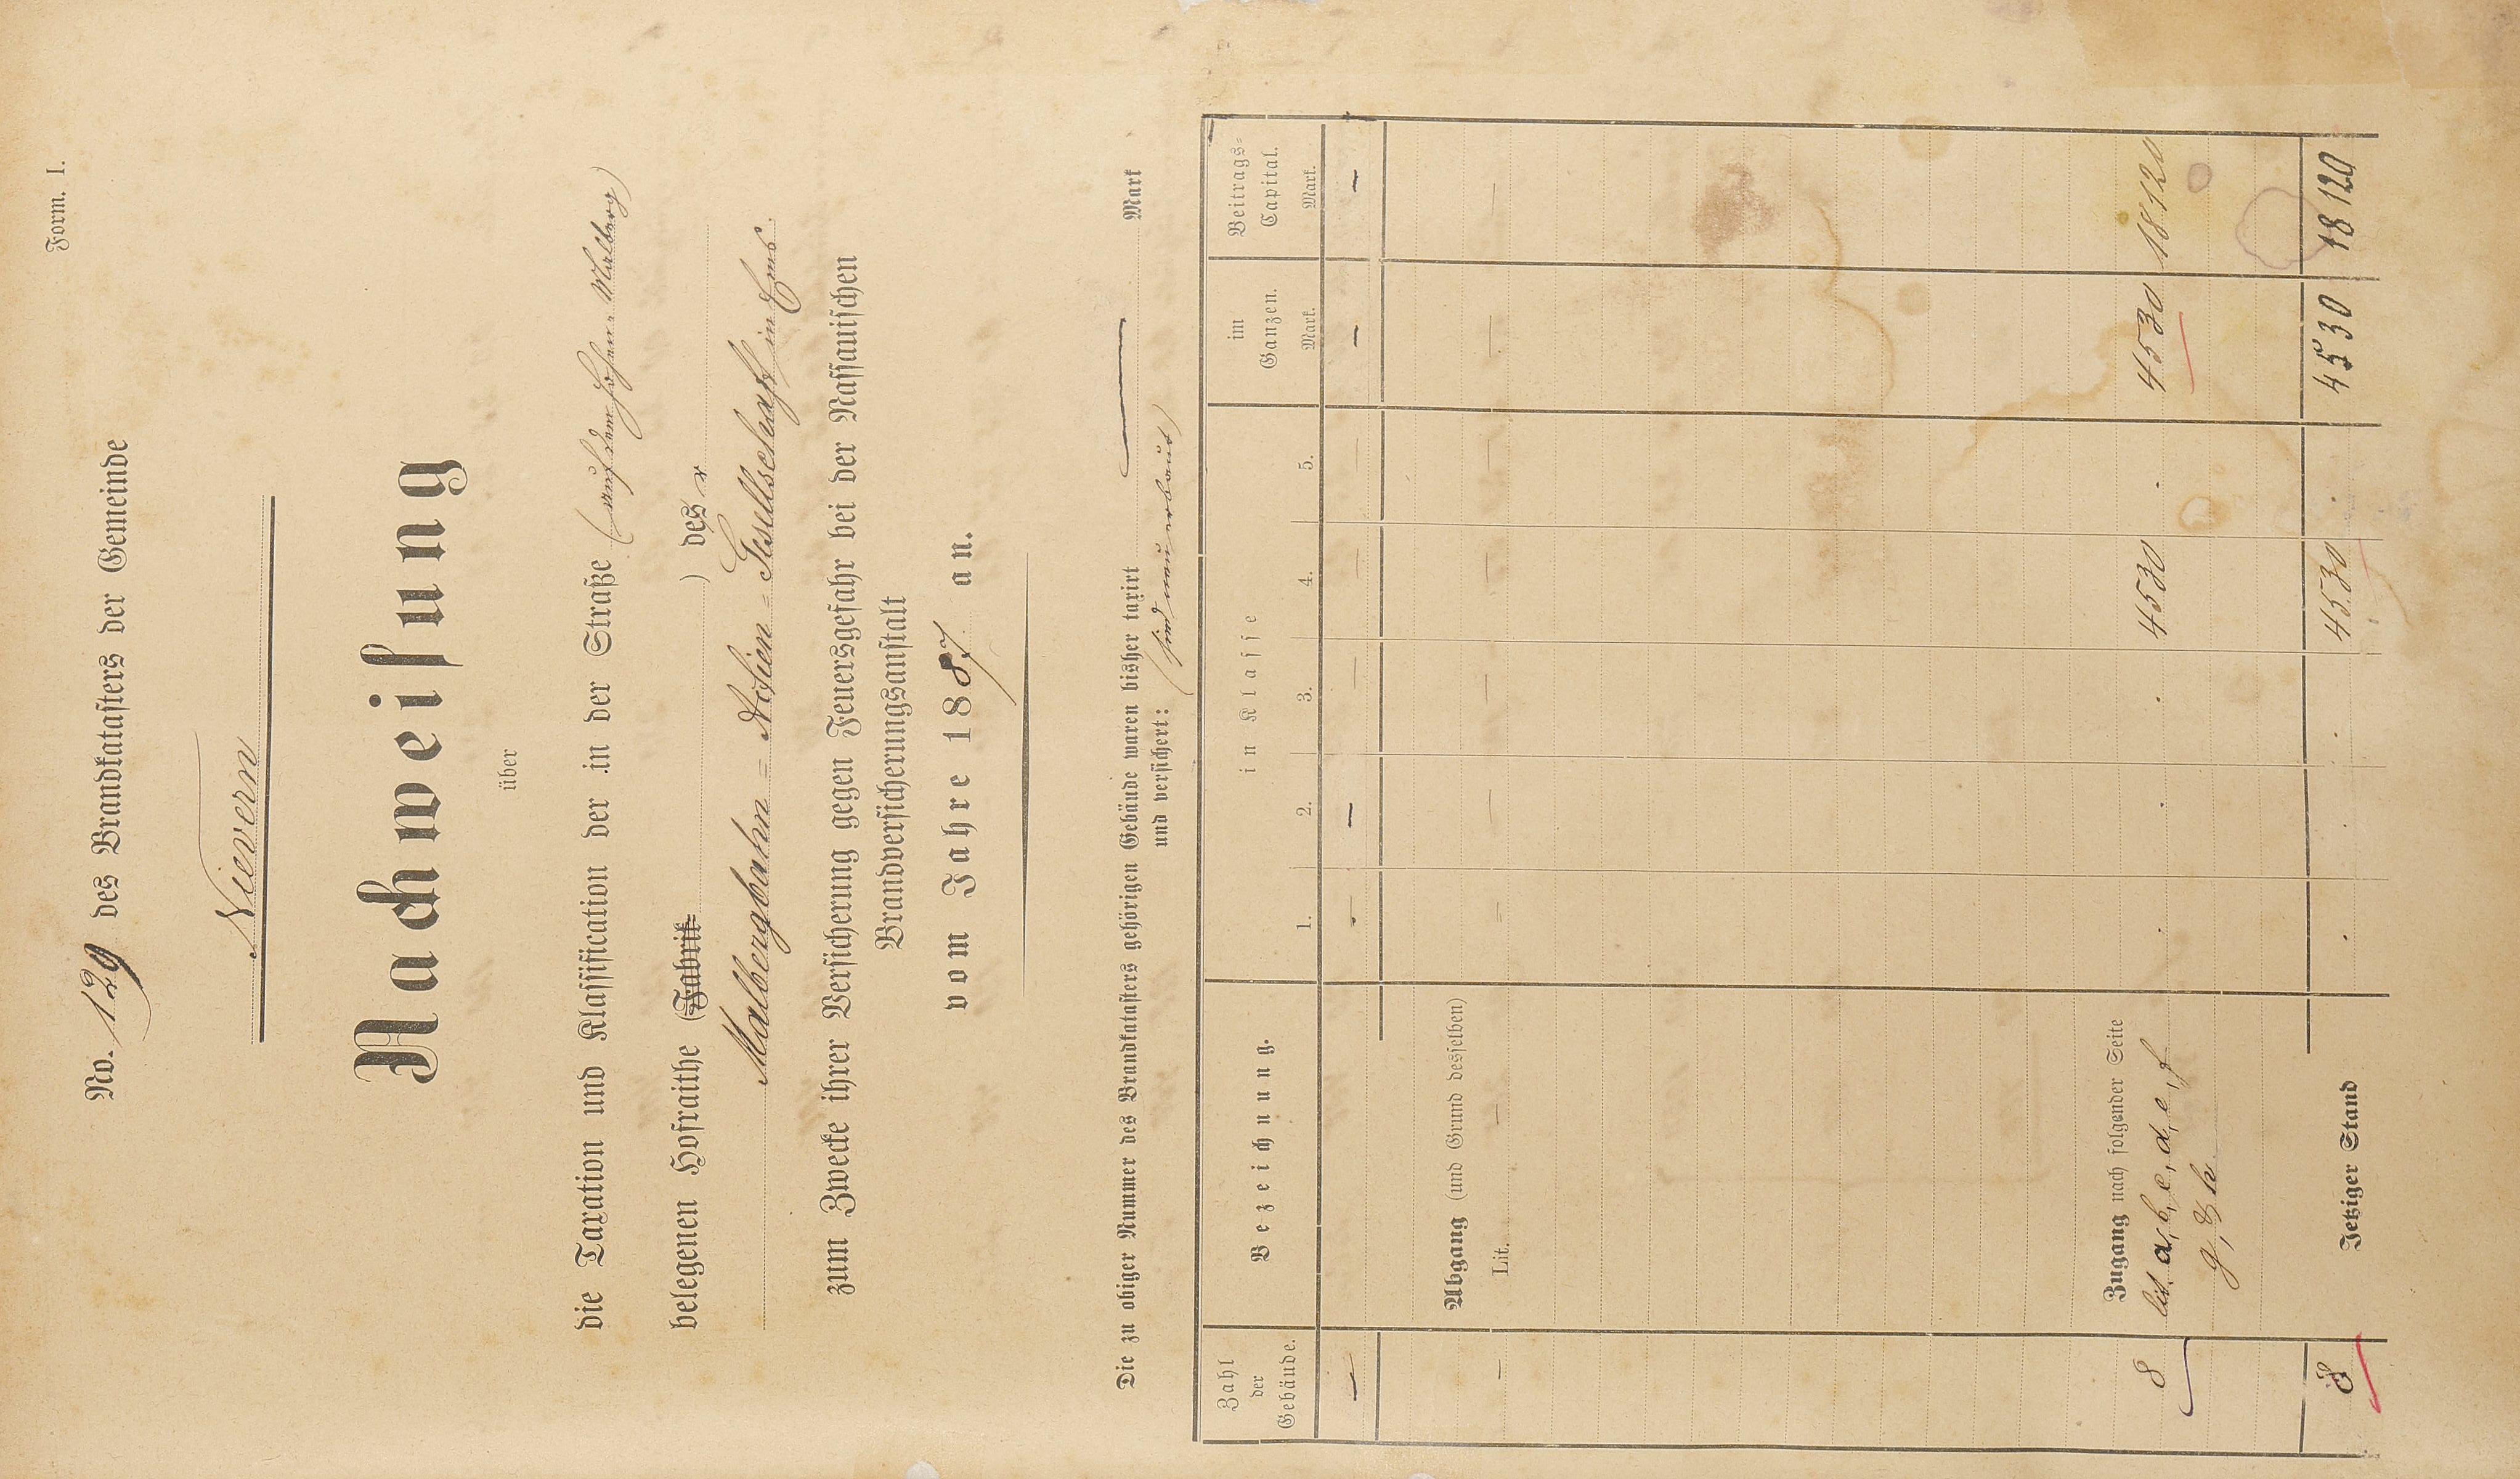 Form. I.
No. 129 des Brandkatasters der Gemeinde
Nievern
Nachweisung
über
die Taxation und Klassification der in der Straße (auf dem hohen Malberg)
belegenen Hofraithe (Fabrik ) des r
Malbergbahn = Actien = Gesellschaft in Ems
zum Zwecke ihrer Versicherung gegen Feuersgefahr bei der Nassauischen
Brandversicherungsanstalt
vom Jahre 1887 an.
Die zu obiger Nummer des Brandkatasters gehörigen Gebäude waren bisher taxirt — Mark
und versichert: (sind neu erbaut)
Zahl der Gebäude. Bezeichnung. in Klasse im Ganzen. Beitrags-Capital.
1. 2. 3. 4. 5. Mark. Mark.
— - — — — — — —
Abgang (und Grund desselben)
— Lit. — = — — — — — —
Zugang nach folgender Seite
8 lit. a, b, c, d, e, f . . . 4530 . 4530 18120
g, & h
8 Jetziger Stand . . . 4530 . 4530 18120